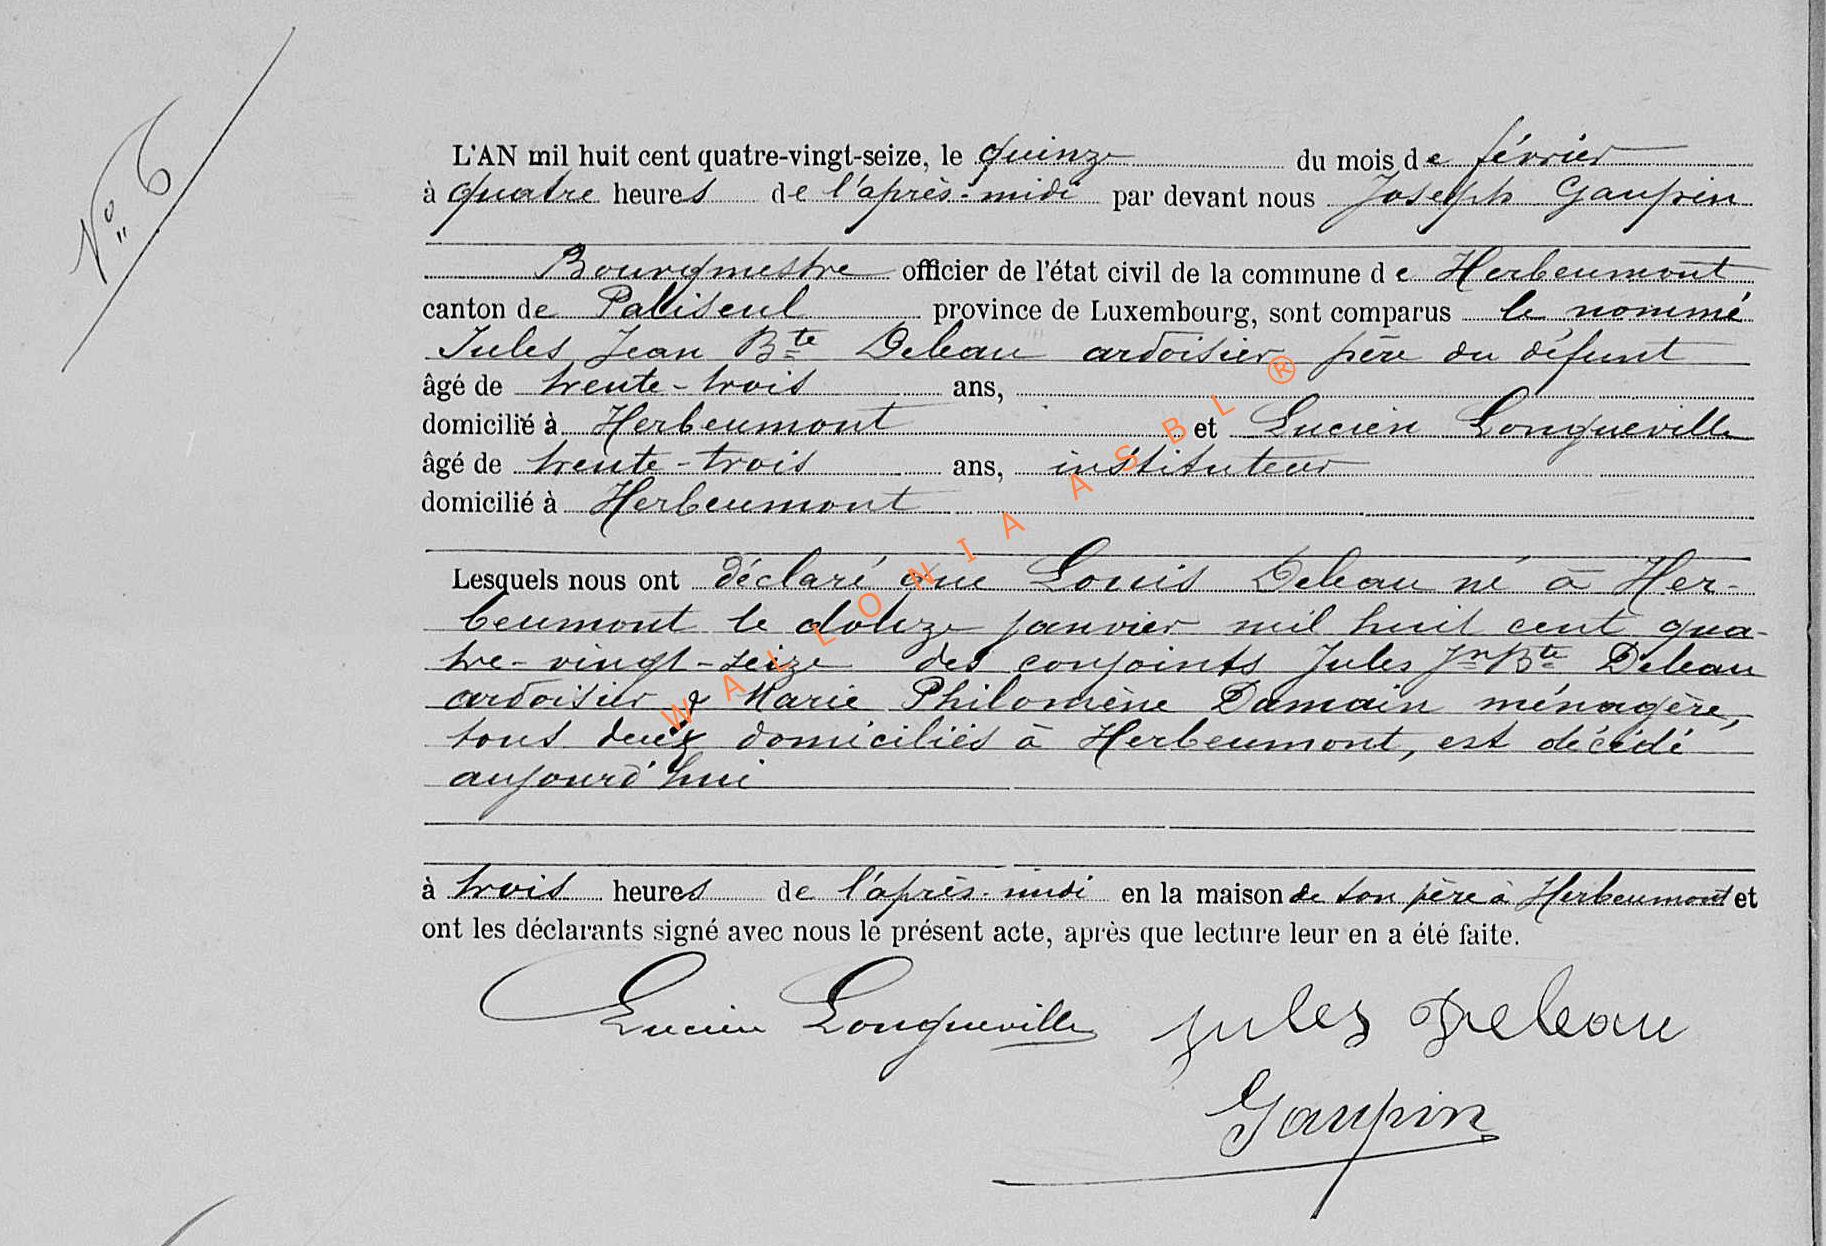 N° 6
L'AN mil huit cent quatre-vingt-seize, le quinze du mois de février
à quatre heures de l'après-midi par devant nous Joseph Gaupin
Bourgmestre officier de l'état civil de la commune de Herbeumont
canton de Paliseul province de Luxembourg, sont comparus le nommé
Jules Jean Bte Deleau ardoisier père du défunt
âgé de trente-trois ans,
domicilié à Herbeumont et Lucien Longueville
âgé de trente-trois ans, instituteur
domicilié à Herbeumont
Lesquels nous ont déclaré que Louis Deleau né à Her-
beumont le douze janvier mil huit cent qua-
tre-vingt-seize des conjoints Jules Jn Bte Deleau
ardoisier & Marie Philomène Damain ménagère,
tous deux domiciliés à Herbeumont, est décédé
aujourd'hui
à trois heures de l'après-midi en la maison de son père à Herbeumont et
ont les déclarants signé avec nous le présent acte, après que lecture leur en a été faite.
Lucien Longueville Jules Deleau
Gaupin
WALLONIA ASBL ®